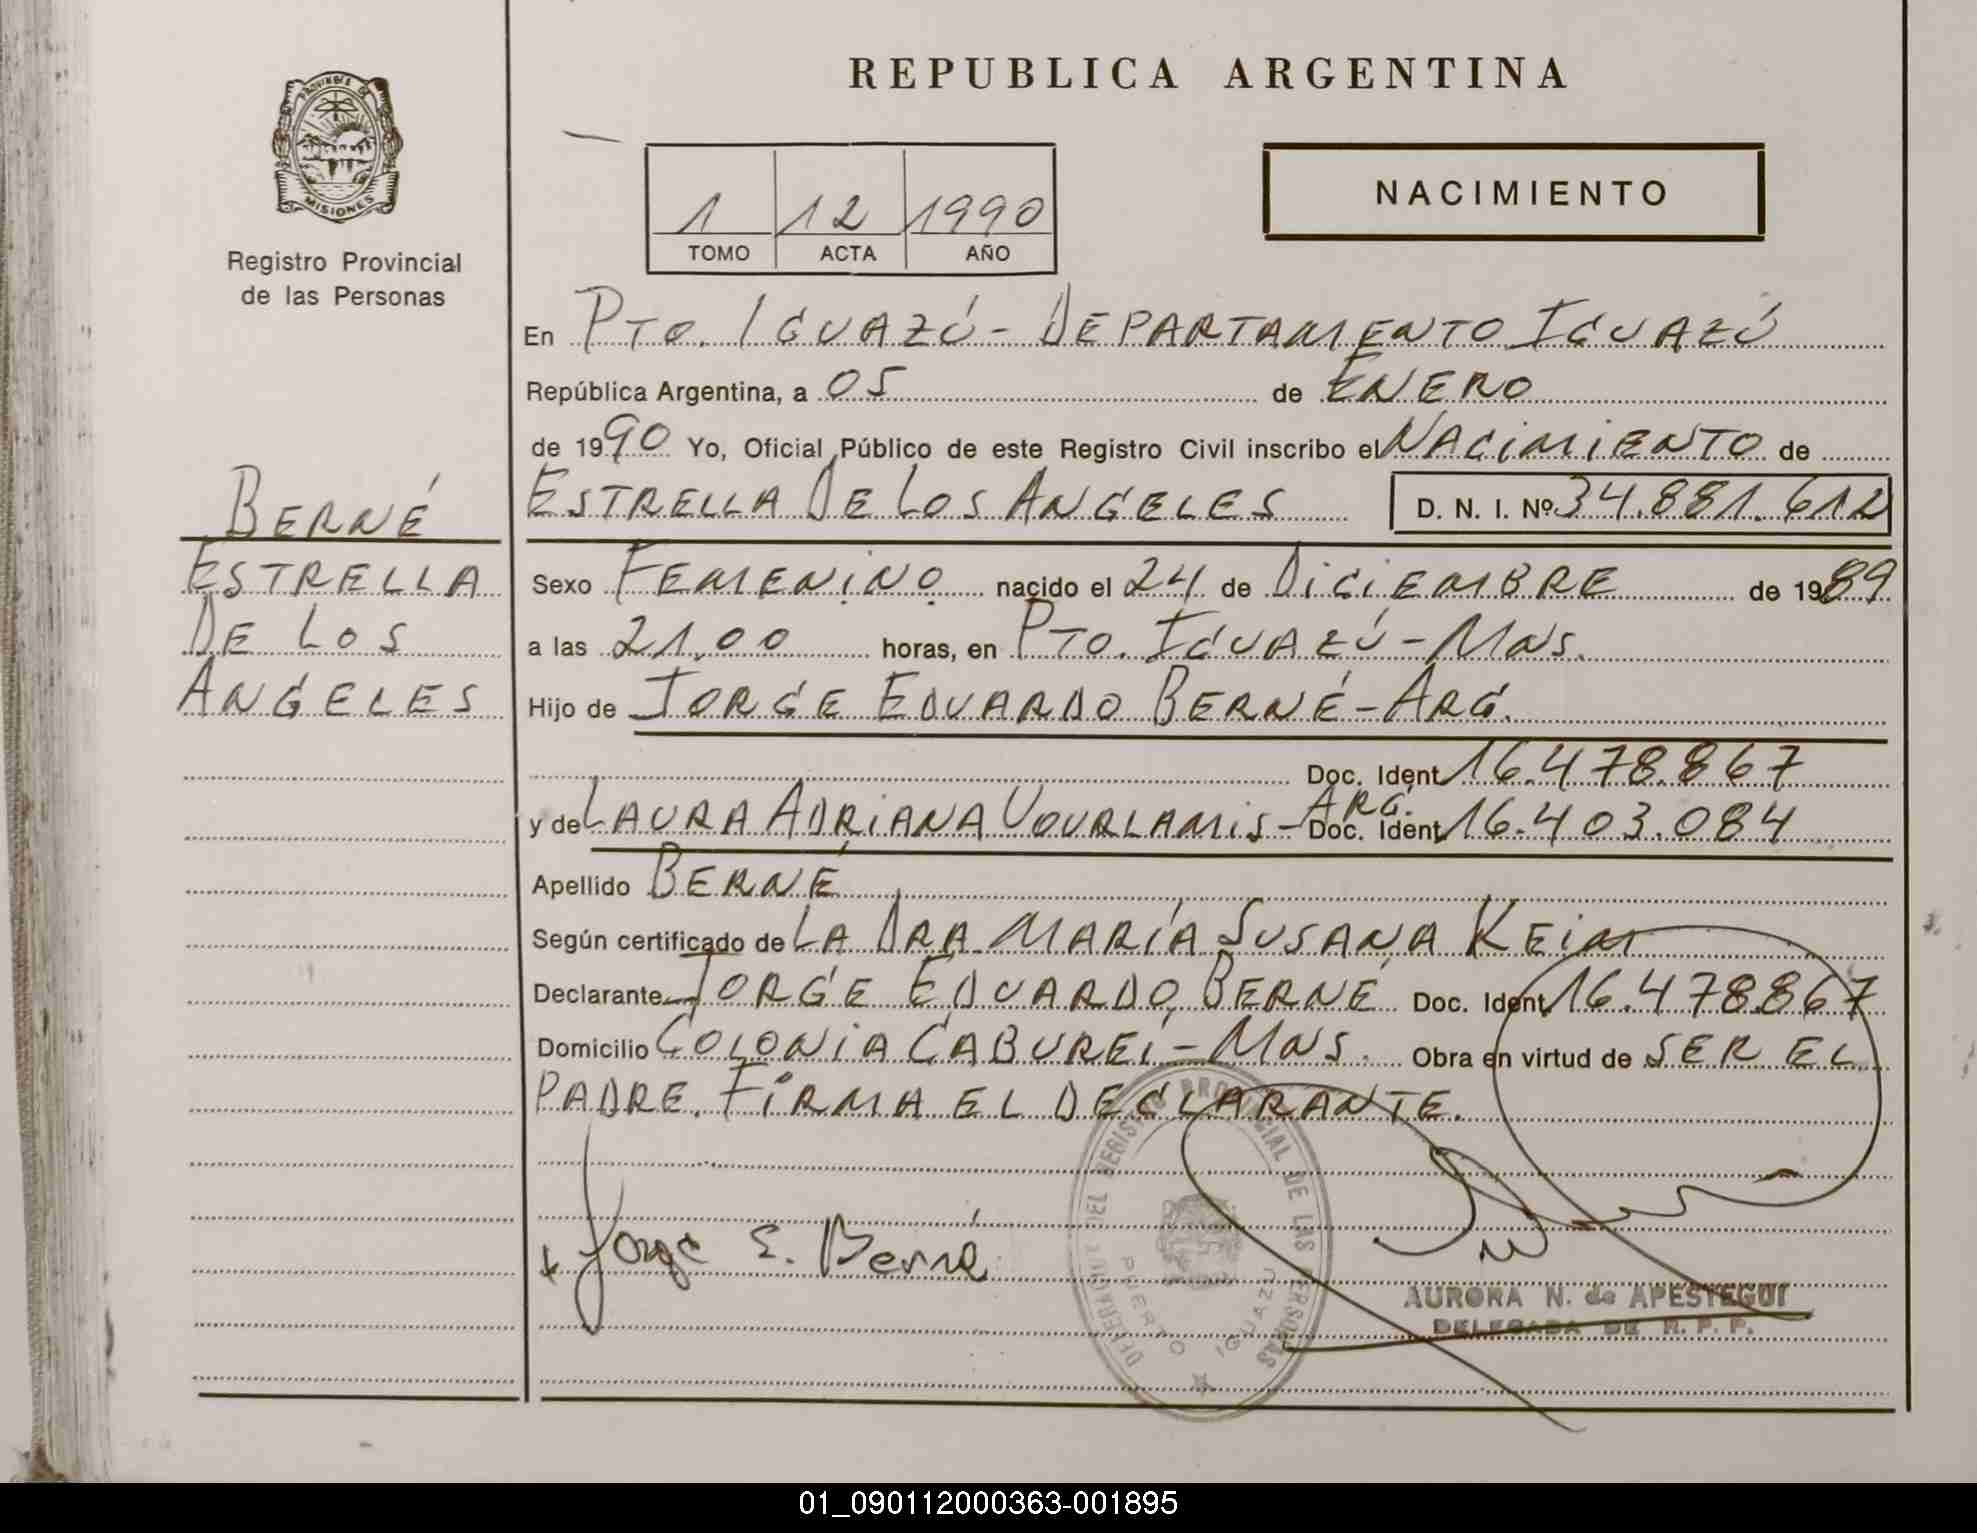 PROVINCIA DE
MISIONES
Registro Provincial
de las Personas
BERNÉ
ESTRELLA
DE LOS
ANGELES
REPUBLICA ARGENTINA
1 12 1990
TOMO ACTA AÑO
NACIMIENTO
En PTO. IGUAZÚ - DEPARTAMENTO IGUAZÚ
República Argentina, a 05 de ENERO
de 1990 Yo, Oficial Público de este Registro Civil inscribo el NACIMIENTO de
ESTRELLA DE LOS ANGELES D. N. I. Nº 34.881.612
Sexo FEMENINO nacido el 24 de DICIEMBRE de 1989
a las 21.00 horas, en PTO. IGUAZÚ - MNS.
Hijo de JORGE EDUARDO BERNÉ - ARG.
Doc. Ident 16.478.867
y de LAURA ADRIANA VOURLAMIS - ARG. Doc. Ident 16.403.084
Apellido BERNÉ
Según certificado de LA DRA MARÍA SUSANA KEIM
Declarante JORGE EDUARDO BERNÉ Doc. Ident 16.478.867
Domicilio COLONIA CABUREÍ - MNS. Obra en virtud de SER EL
PADRE. FIRMA EL DECLARANTE.
Jorge E. Berné
DEL REGISTRO PROVINCIAL DE LAS PERSONAS
PUERTO IGUAZU
AURORA N. de APESTEGUI
DELEGADA DE R. P. P.
01_090112000363-001895